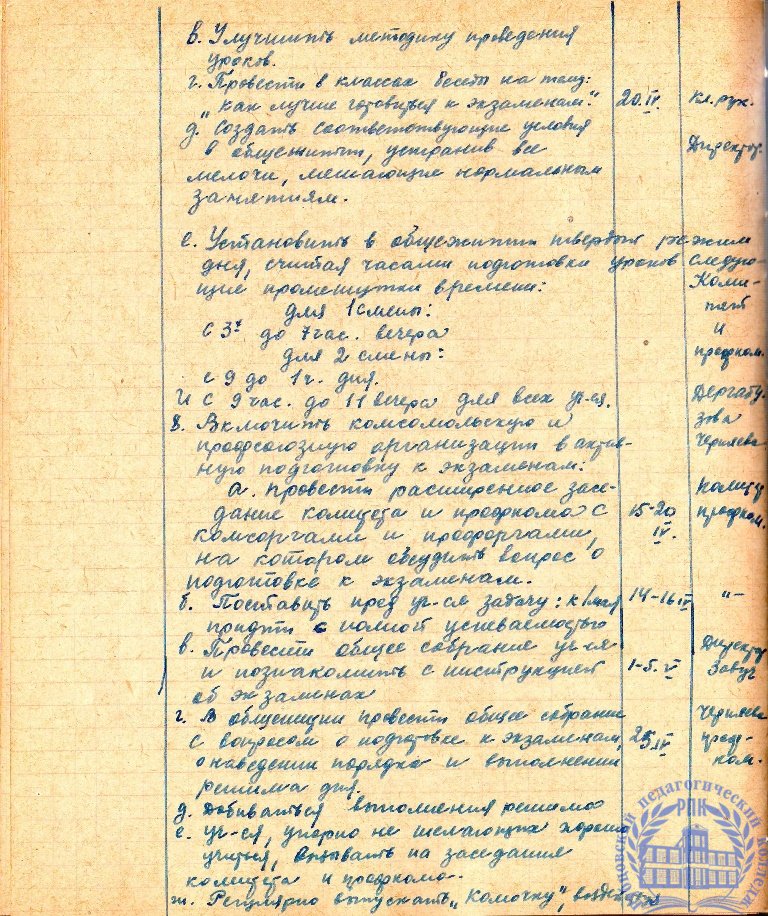 в. Улучшить методику проведения
уроков.
г. Провести в классах беседы на тему:
„Как лучше готовиться к экзаменам." 20.IV Кл. рук.
д. Создать соответствующие условия
в общежитии, устранив все Директор.
мелочи, мешающие нормальным
занятиям.
е. Установить в общежитии твердый режим
дня, считая часами подготовки уроков следую-
щие промежутки времени: Коми-
для 1 смены: тет
с 3х до 7 час. вечера и
для 2 смены: профком.
с 9 до 1 ч. дня.
И с 9 час. до 11 вечера для всех уч-ся. Дергабу-
8. Включить комсомольскую и зова
профсоюзную организации в актив- Черняева
ную подготовку к экзаменам:
а. Провести расширенное засе- Комитет
дание комитета и профкома с 15-20 профком.
комсоргами и профоргами, IV.
на котором обсудить вопрос о
подготовке к экзаменам.
б. Поставить пред уч-ся задачу: к 1 мая 14-16 IV „–
придти с полной успеваемостью
в. Провести общее собрание уч-ся Директор
и познакомить с инструкцией 1-5. V Завуч
об экзаменах
г. В общежитии провести общее собрание Черняева
с вопросом о подготовке к экзаменам, 25.IV проф-
о наведении порядка и выполнении ком.
режима дня.
д. Добиваться выполнения режима
е. уч-ся, упорно не желающих хорошо
учиться, вызывать на заседания
комитета и профкома.
ж. Регулярно выпускать „Колючку",
педагогический колледж
РПК